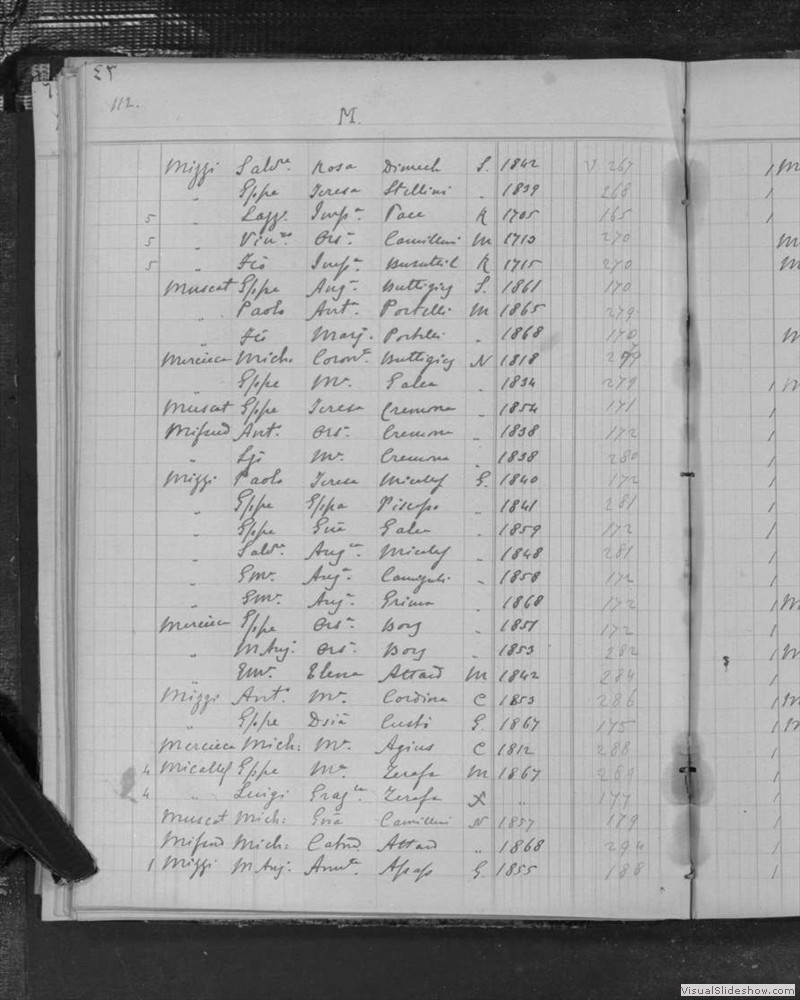 112.
M.
Mizzi Salv.re Rosa Dimech S. 1842 V 267
" Gppe Teresa Stellini " 1839 268
5 " Lazz. Imp.a Pace R 1705 165
5 " Vin.zo Ors.a Camilleri M 1713 270
5 " Fco Imp.a Busuttil R 1715 270
Muscat Gppe Ang.a Buttigieg S. 1861 170
" Paolo Ant.a Portelli M 1865 279
" Fco Marj. Portelli " 1868 170
Mercieca Mich. Coron.a Buttigieg N 1818
" Gppe M.a Galea " 1834 279
Muscat Gppe Teresa Cremona " 1854 171
Mifsud Ant. Ors.a Cremona " 1838 172
" M.a Cremona " 1838 280
Mizzi Paolo Teresa Micallef G. 1840 172
" Gppe Gppa Piscopo " 1841 281
" Gppe Galea " 1859 172
" Salv.re Ang.ca Micallef " 1848 281
" Em. Ang.a 1858 172
" Em. Ang.a Grima " 1868 172
Mercieca Gppe Ors.a Borg " 1851 172
" M Anj. Ors.a Borg " 1853 282
" Em. Elena Attard M 1842 284
Mizzi Ant.o M.a Cordina C 1853 286
" Gppe Cusb G. 1867 175
Mercieca Mich: M.a Agius C 1812 288
4 Micallef Gppe M.a Zerafa M 1867 269
4 " Luigi Zerafa X " 177
Muscat Mich: Camilleri N 1857 179
Mifsud Mich: Attard " 1868 294
1 Mizzi M Anj. Apap G. 1855 188
VisualSlideshow.com